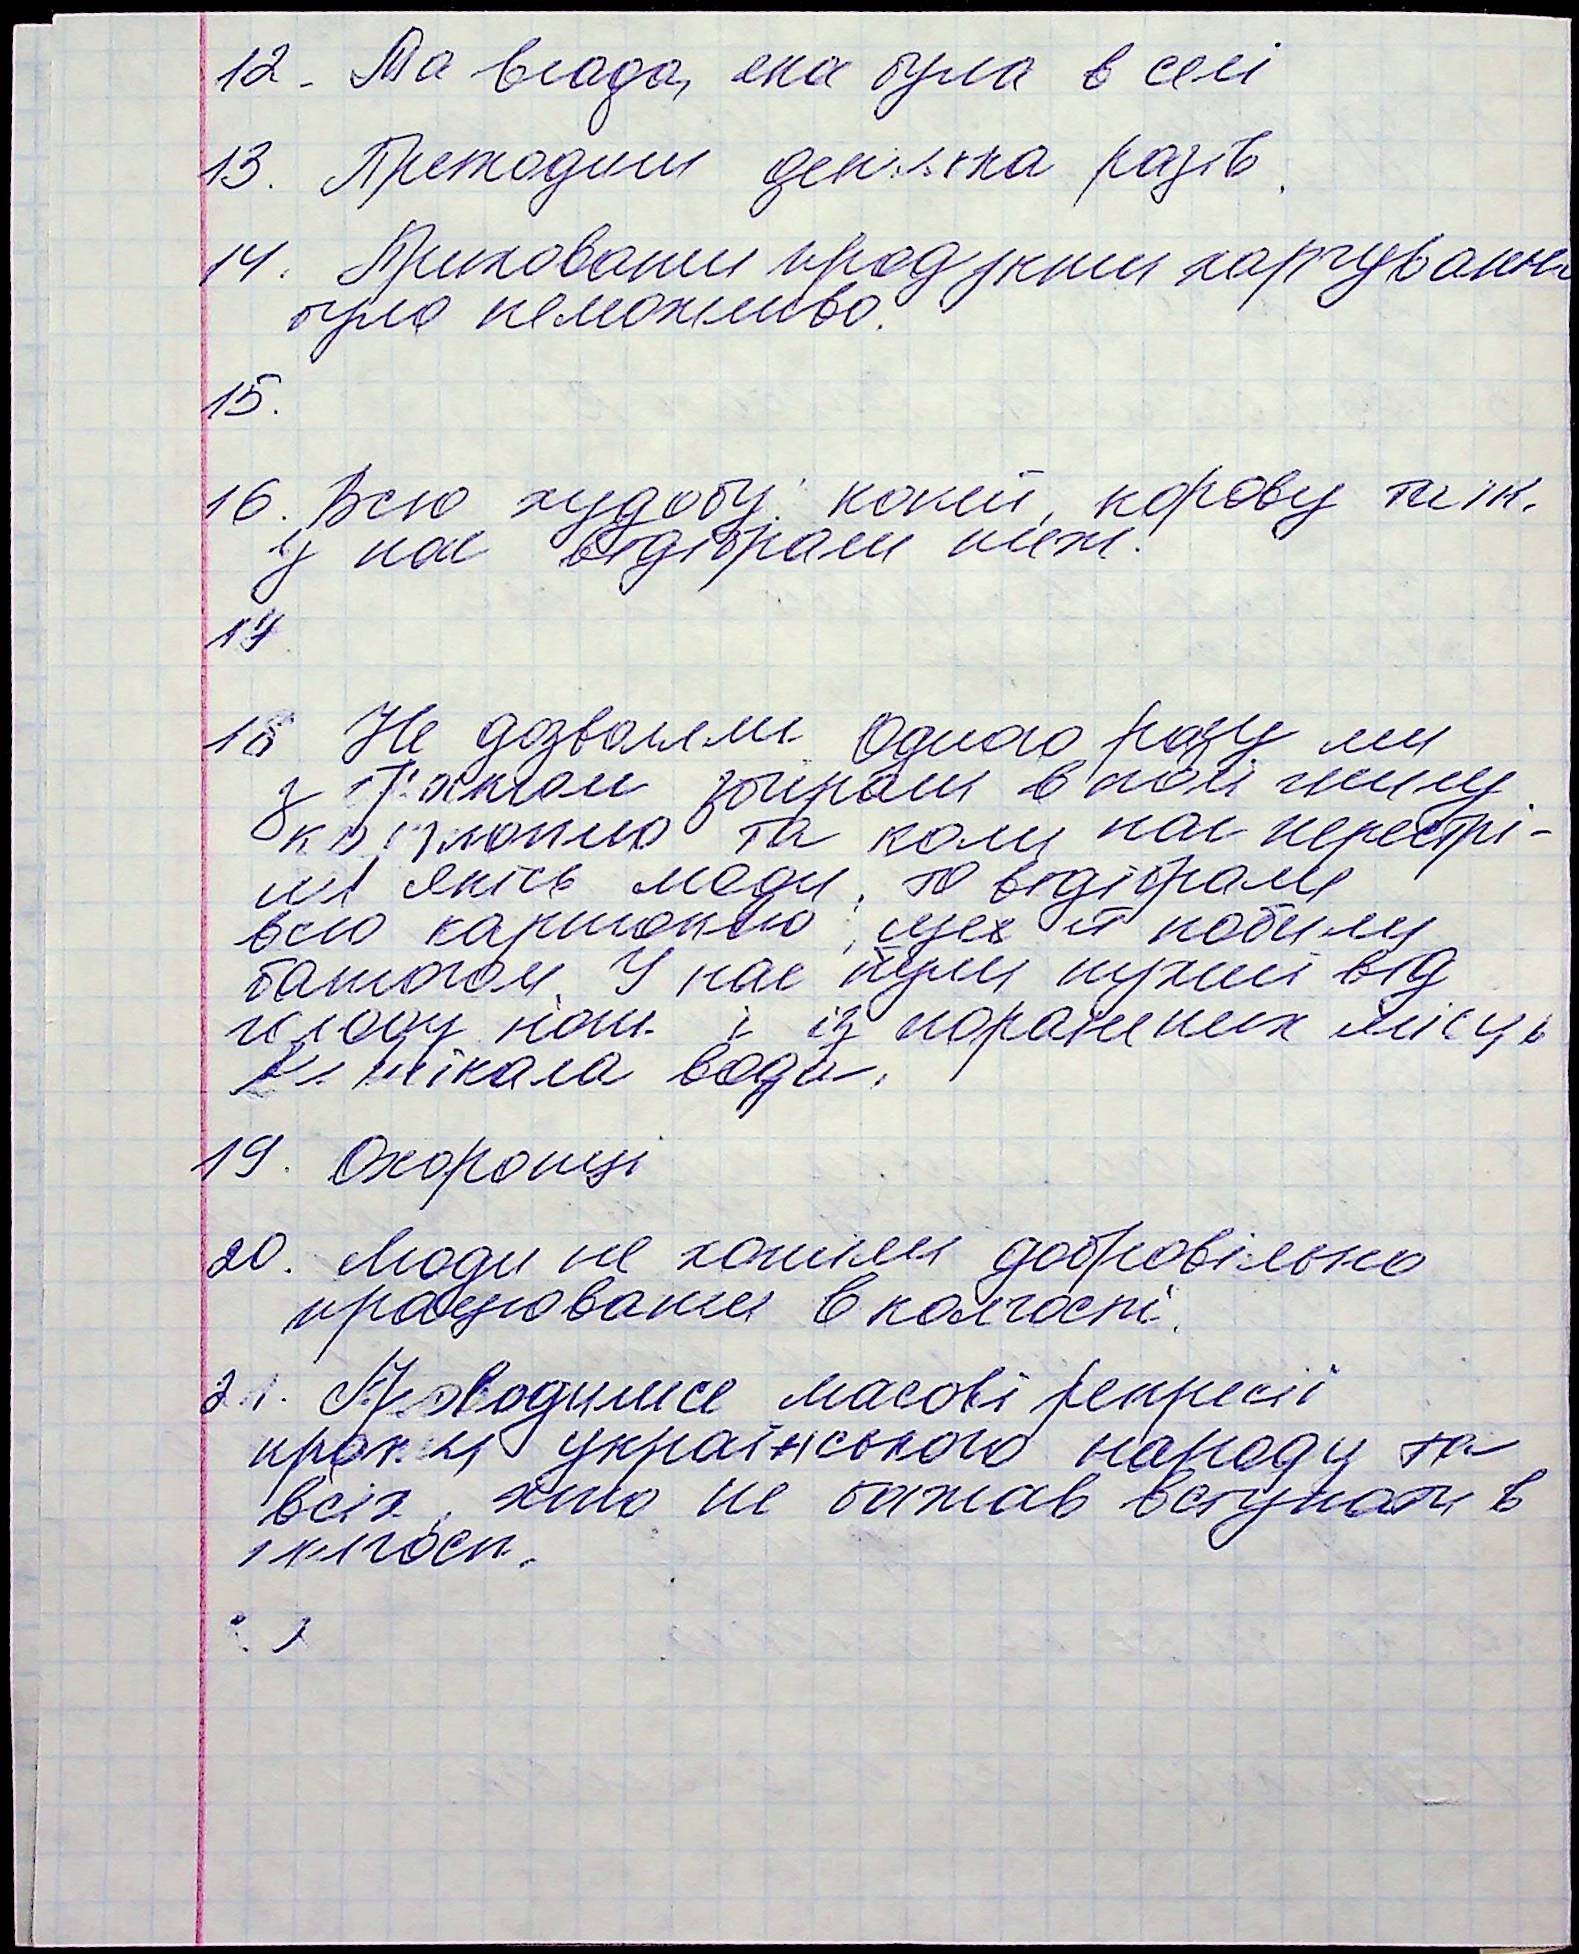 12. Та влада, яка була в селі
13. Приходили декілька разів.
14. Приховати продукти харчування
було неможливо.
15.
16. Всю худобу: коней, корову та ін.
у нас відібрали теж.
17
18 Не дозволяли. Одного разу ми
з братом збирали в полі гнилу
картоплю та коли нас перестрі-
ли якісь люди, то відібрали
всю картоплю, ще й побили
батогом. У нас були пухлі від
голоду ноги і із поранених місць
витікала вода.
19. Охоронці
20. Люди не хотіли добровільно
працювати в колгоспі.
21. Проводилися масові репресії
проти українського народу та
всіх, хто не бажав вступати в
колгосп.